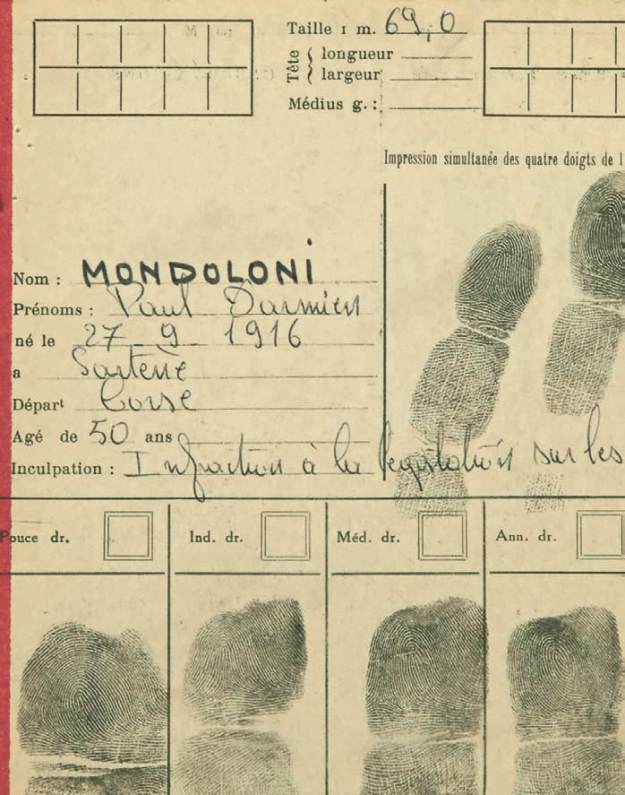 Taille 1 m. 69,0
Tête { longueur
largeur
Médius g. :
Impression simultanée des quatre doigts de l
Nom : MONDOLONI
Prénoms : Paul Damien
né le 27_9_1916
a Sartène
Départ Corse
Agé de 50 ans
Inculpation : Infraction à la législation sur les
Pouce dr. Ind. dr. Méd. dr. Ann. dr.